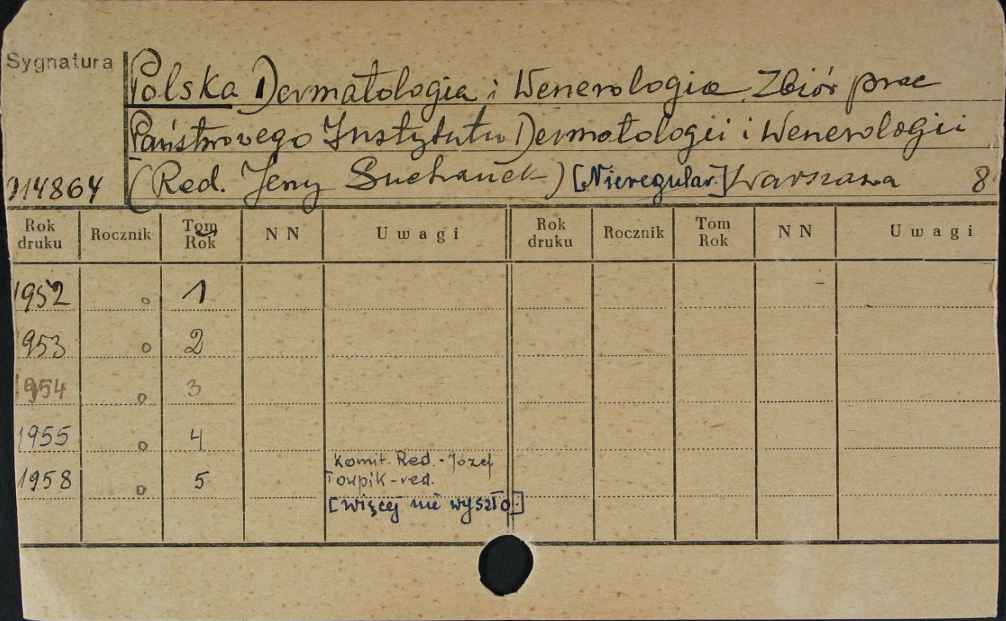 Sygnatura
Polska Dermatologia i Wenerologia. Zbiór prac
Państwowego Instytutu Dermatologii i Wenerologii
714864 (Red. Jerzy Suchanek) [Nieregular.] Warszawa 8°
Rok druku Rocznik Tom Rok NN Uwagi Rok druku Rocznik Tom Rok NN Uwagi
1952 o 1
1953 o 2
1954 o 3
1955 o 4
Komit. Red. - Józef
1958 o 5 Towpik - red.
[Więcej nie wyszło.]